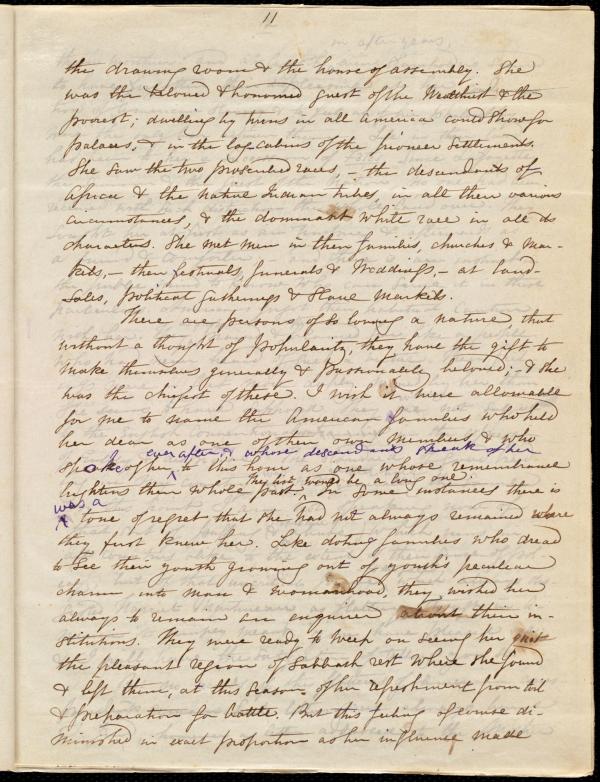 11
in after years,
the drawing room & the house of assembly. She
was the beloved & honoured guest of the Wealthiest & the
poorest; dwelling by turns in all America could show for
palaces, & in the log cabins of the pioneer settlements.
She saw the two proscribed races, – the descendants of
Africa & the native Indian tribes, in all their various
circumstances, & the dominant white race in all its
characters. She met men in their families, churches & Mar-
kets, – their festivals, funerals & Weddings, – at land-
sales, political gatherings & Slave Markets.
There are persons of so loving a nature that
without a thought of popularity, they have the gift to
make themselves generally & passionately beloved; & she
was the chiefest of these. I wish it were allowable
for me to name the American families who held
her dear as one of their own members & who
ever after; & whose descendants speak of her
spoke of her to this hour as one whose remembrance
They list would be a long one.
brightens their whole past. In some instances there is
was a
tone of regret that she had not always remained where
they first knew her. Like doting families who dread
to see their youth growing out of youth's peculiar
charm into man & womanhood, they wished her
always to remain an enquirer about their in-
stitutions. They were ready to weep on seeing her quit
the pleasant region of Sabbath rest where she found
& left them, at this season of her refreshment from toil
& preparation for battle. But this feeling of course di-
minished in exact proportion as her influence made